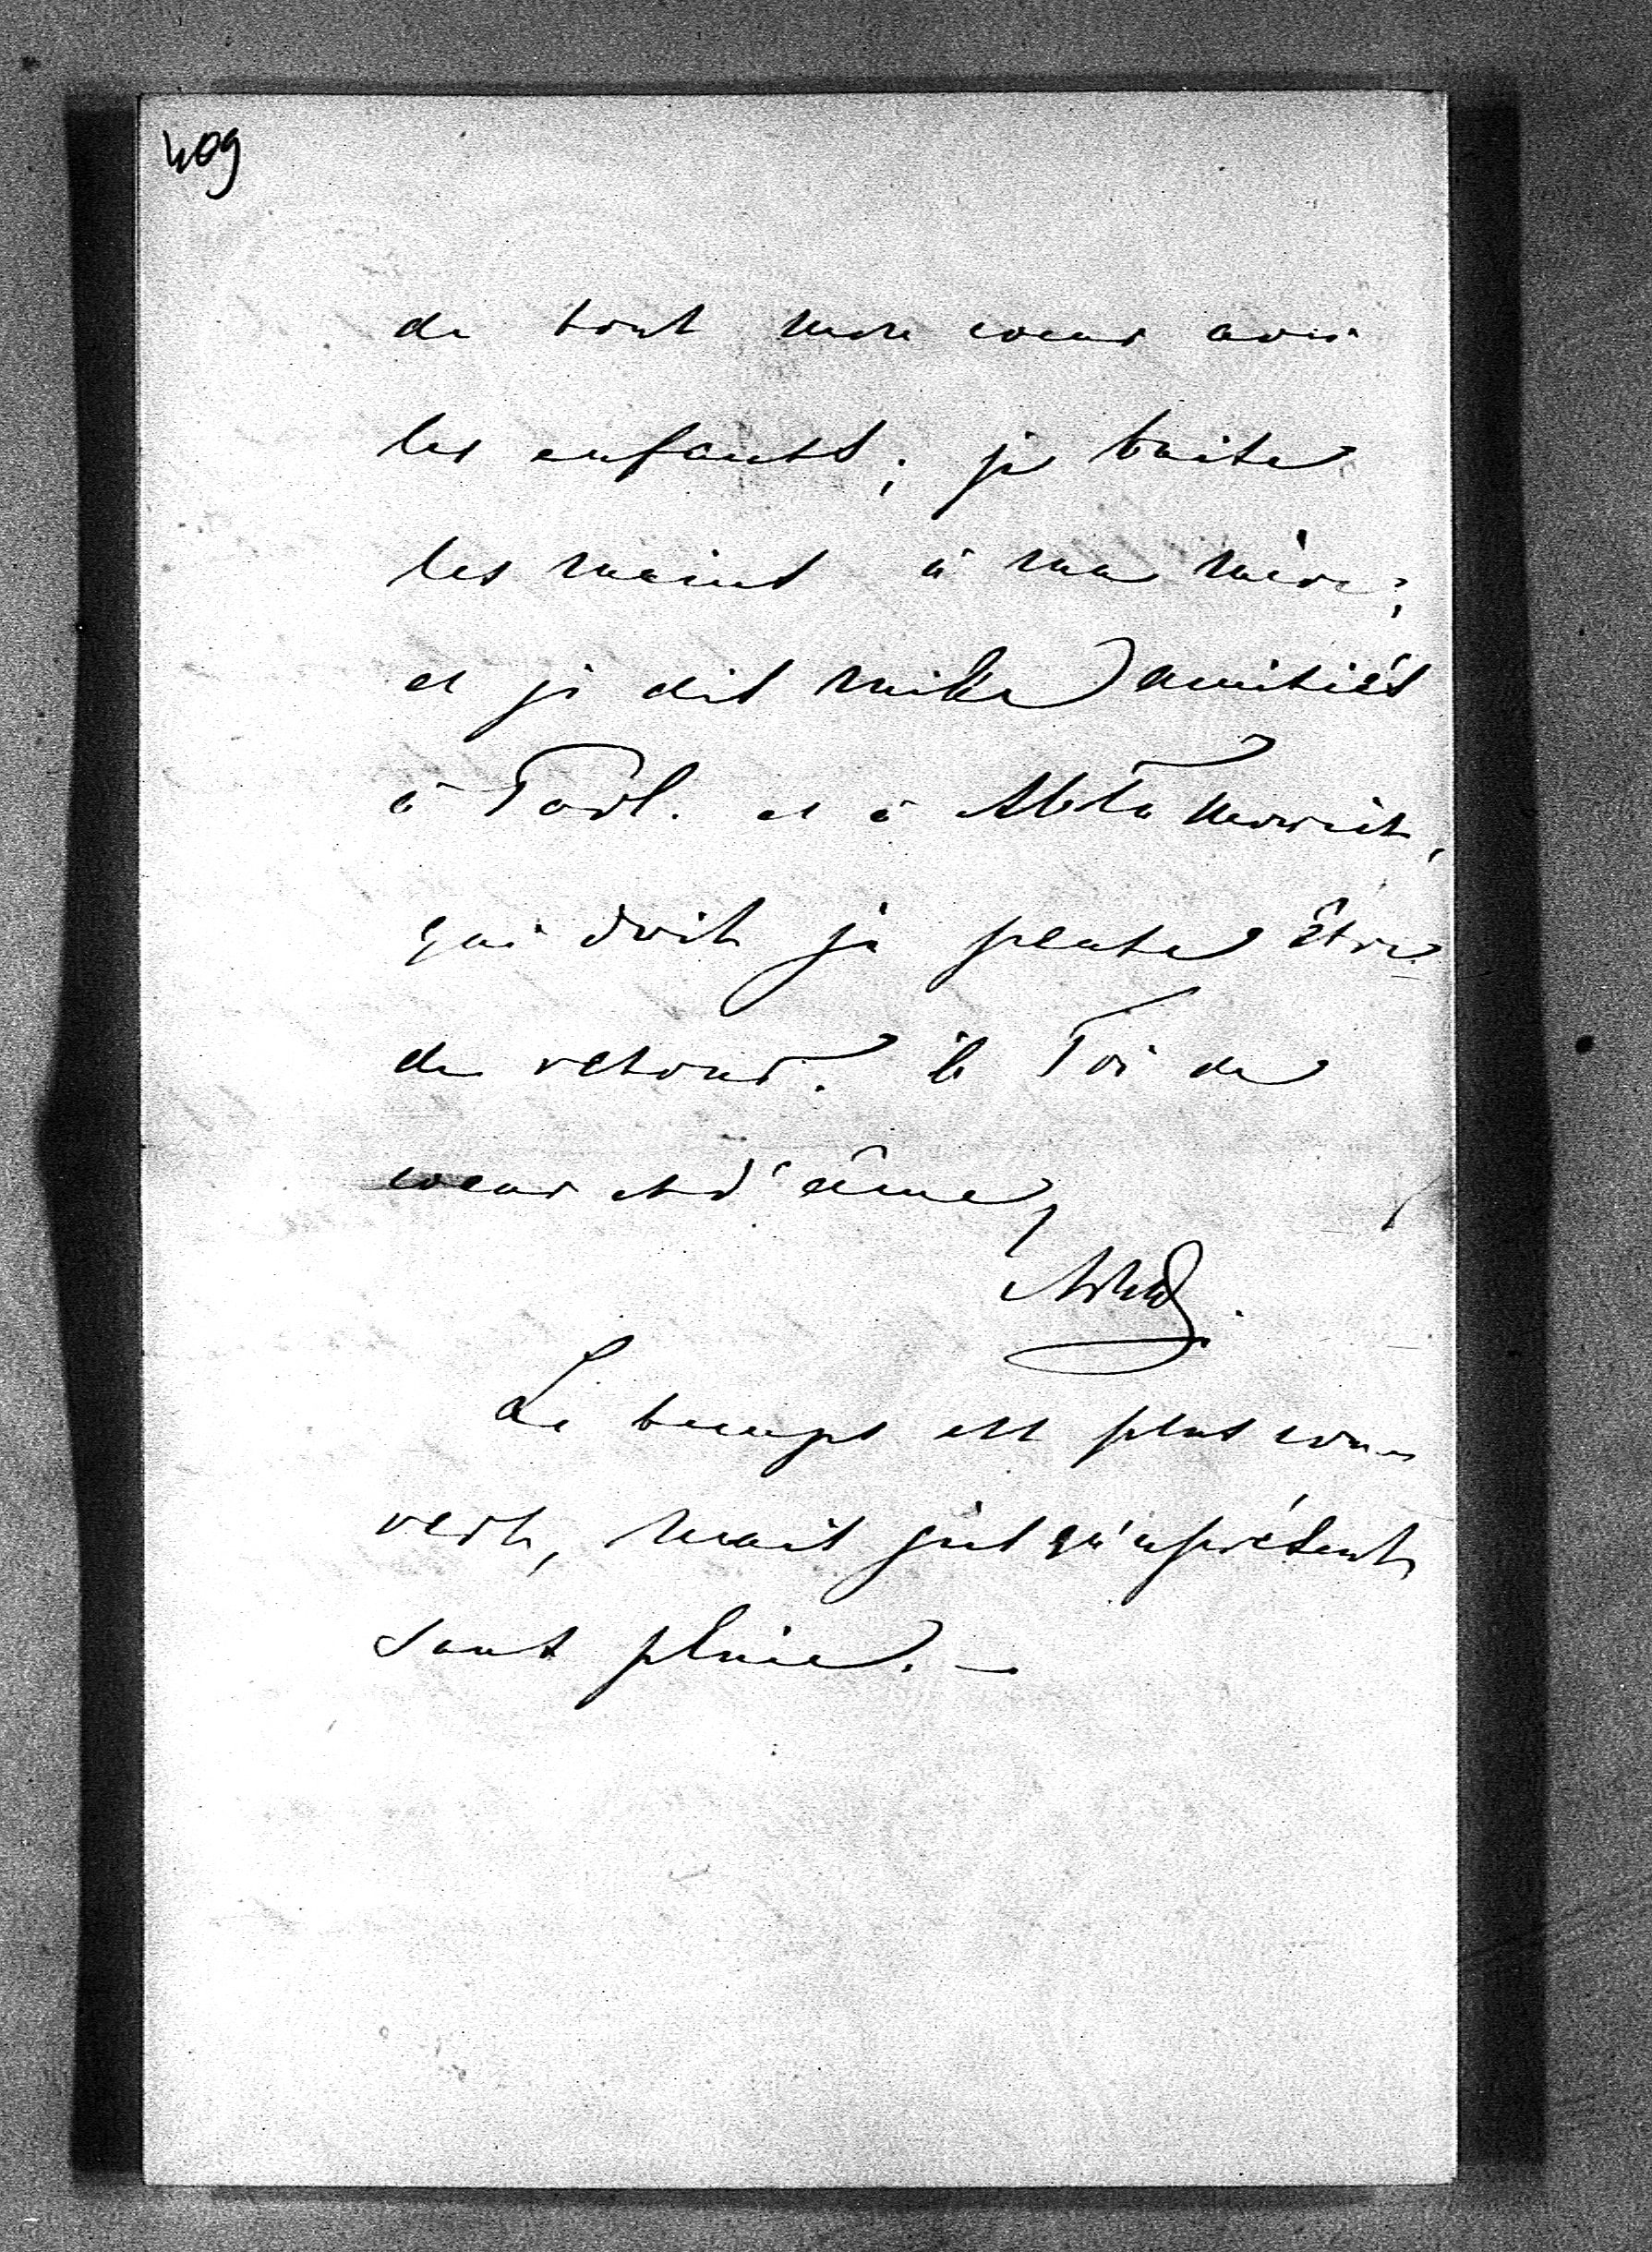 409
de tout mon coeur avec
les enfants; je baise
les mains à ma mère;
et je dis mille amitiés
à Paul. et à
qui doit je pense être
de retour. à Toi de
coeur et d'âme,
Le temps est plus cou-
vert, mais jusqu'aprésent
sans pluie. —